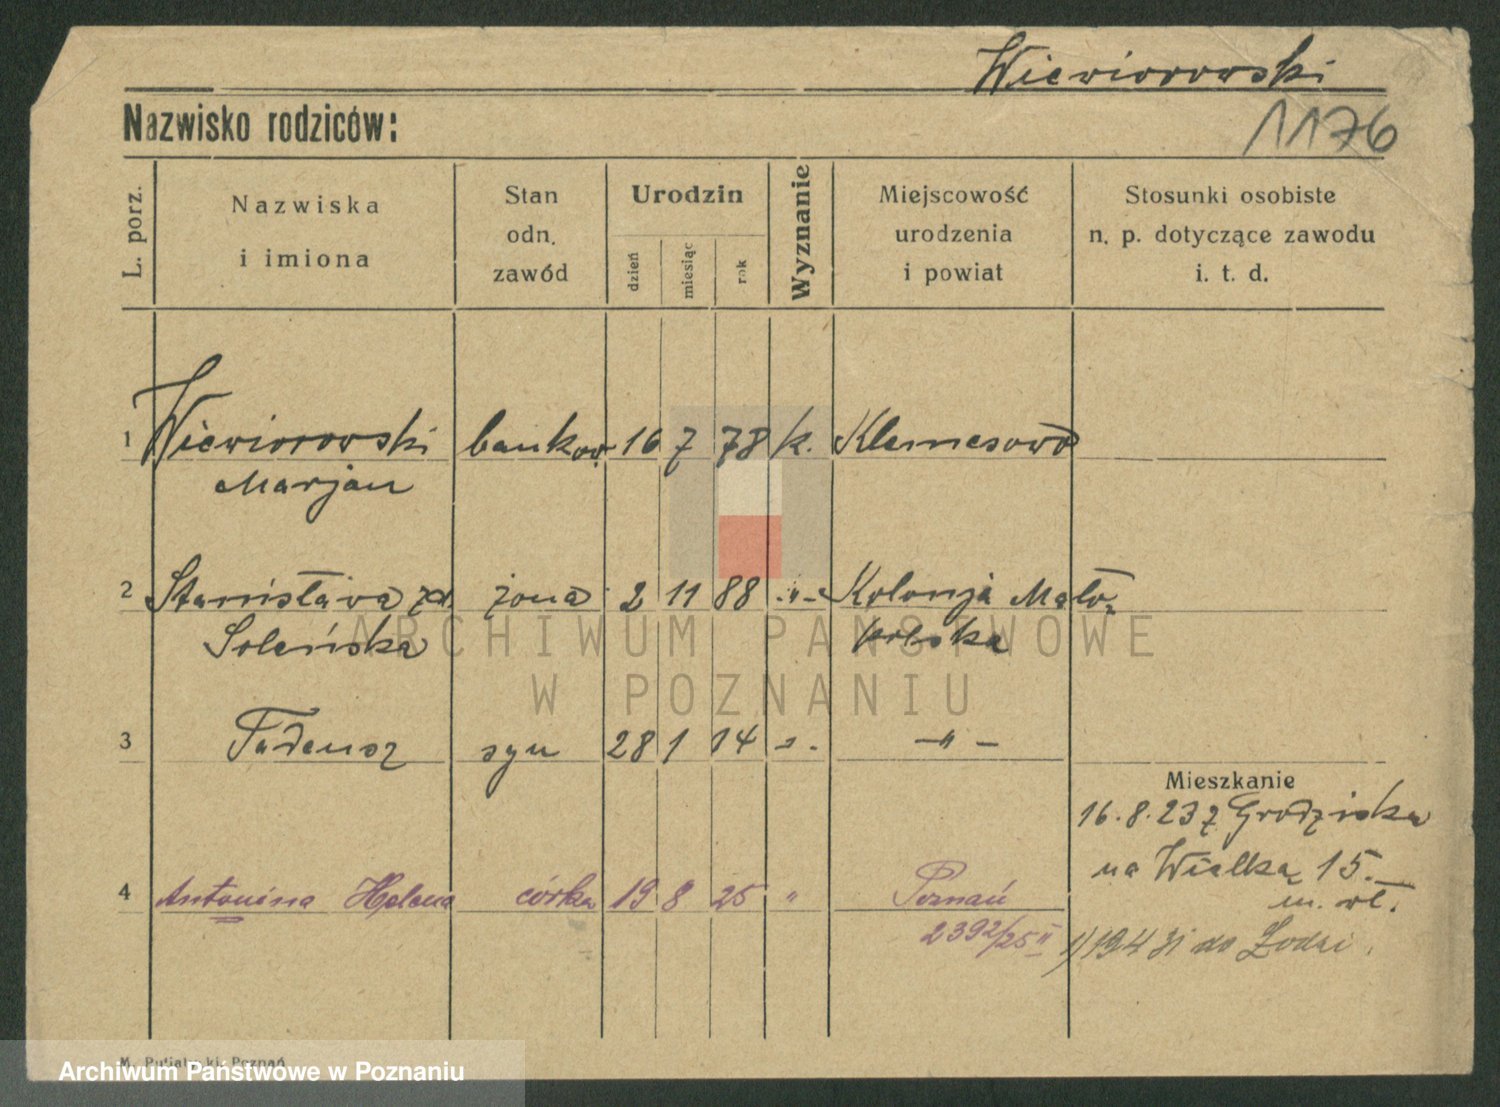 Wiewiorowski
Nazwisko rodziców:
1176
L. porz.
Nazwiska
i imiona
Stan
odn.
zawód
Urodzin
dzień
miesiąc
rok
Wyznanie
Miejscowość
urodzenia
i powiat
Stosunki osobiste
n. p. dotyczące zawodu
i. t. d.
1 Wiewiorowski bankow. 16 7 78 k.
Marjan
2 Stanisława zd. żona 2 11 88 -"- Kolonja Mało-
Soleńska polska
3 Tadeusz syn 28 1 14 -"-
Mieszkanie
16.8.23 z Grodziska
na Wielką 15.
m. wł.
4 Antonina Helena córka 19 8 25 " Poznań
2392/25 II
1) 194 do Łodzi.
ARCHIWUM PAŃSTWOWE
W POZNANIU
Poznań
Archiwum Państwowe w Poznaniu